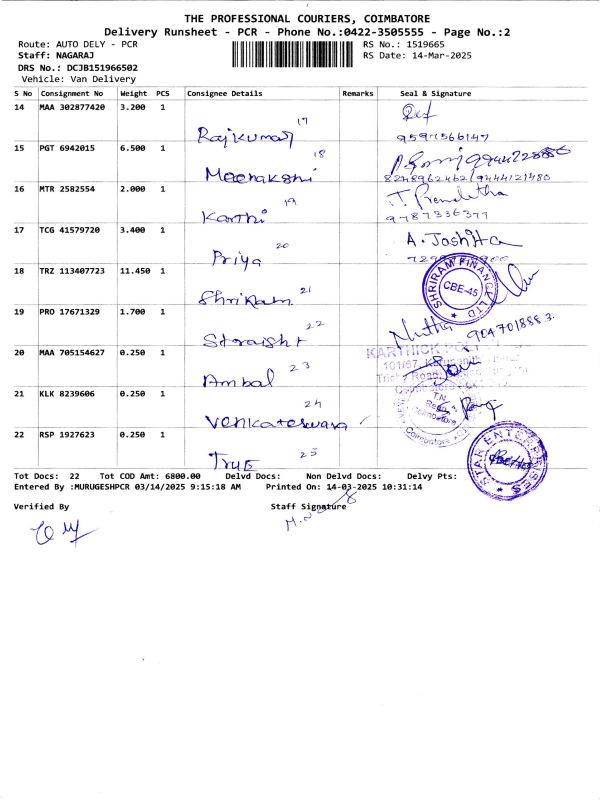 THE PROFESSIONAL COURIERS, COIMBATORE
Delivery Runsheet - PCR - Phone No.:0422-3505555 - Page No.:2
Route: AUTO DELY - PCR RS No.: 1519665
Staff: NAGARAJ RS Date: 14-Mar-2025
DRS No.: DCJB151966502
Vehicle: Van Delivery
S No Consignment No Weight PCS Consignee Details Remarks Seal & Signature
14 MAA 302877420 3.200 1
17
Rajkumar 9597566147
15 PGT 6942015 6.500 1
18
Meenakshi 8248962462/9444121480
16 MTR 2582554 2.000 1
19
Karthi 9787336377
17 TCG 41579720 3.400 1 A. Joshita
20
Priya
18 TRZ 113407723 11.450 1 SHRIRAM FINANCE LTD
CBE-45
21
Shriram
19 PRO 17671329 1.700 1
22
Straight Nutha 9047018883.
20 MAA 705154627 0.250 1 KARTHICK
23
Ambal
21 KLK 8239606 0.250 1 T.N.
Coimbatore
24
Venkateswara
22 RSP 1927623 0.250 1 STAR ENTERPRISES
25
True
Tot Docs: 22 Tot COD Amt: 6800.00 Delvd Docs: Non Delvd Docs: Delvy Pts:
Entered By :MURUGESHPCR 03/14/2025 9:15:18 AM Printed On: 14-03-2025 10:31:14
Verified By Staff Signature